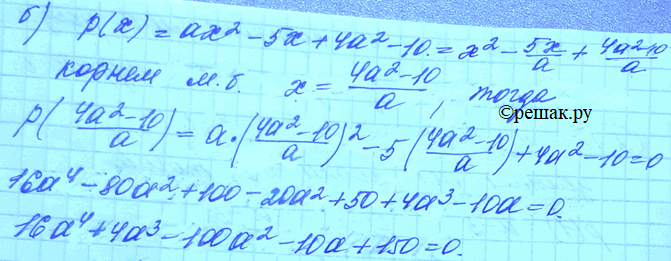 б) p(x) = ax² - 5x + 4a² - 10. = x² - 5x/a + 4a²-10/a
корнем м.б. x = 4a²-10/a, тогда
©решак.ру
p(4a²-10/a) = a·(4a²-10/a)² - 5(4a²-10/a) + 4a² - 10 = 0
16a⁴ - 80a² + 100 - 20a² + 50 + 4a³ - 10a = 0.
16a⁴ + 4a³ - 100a² - 10a + 150 = 0.